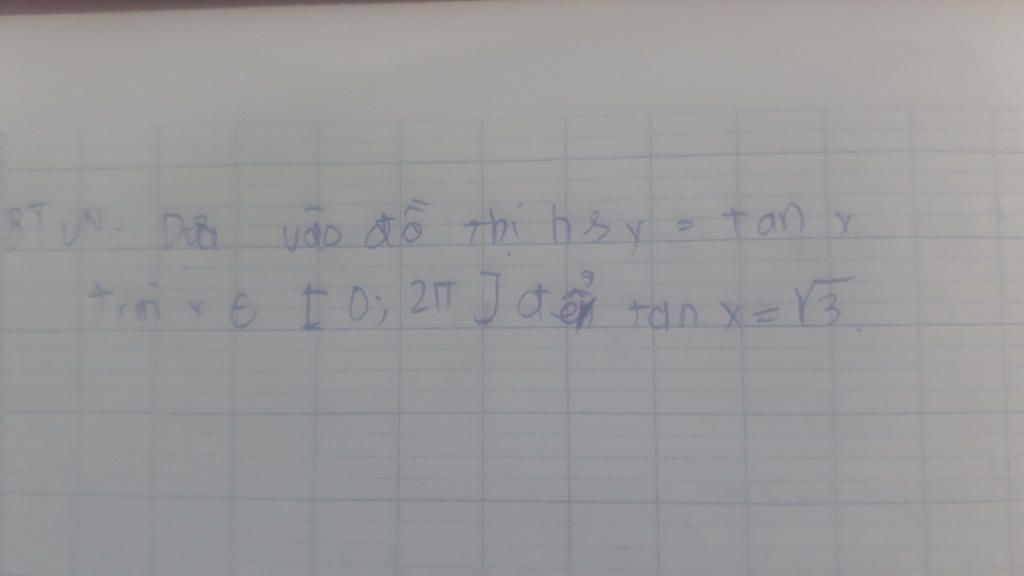 BTVN. Dựa vào đồ thị hs y = tan x
tìm x ∈ [0; 2π] để tan x = √3.